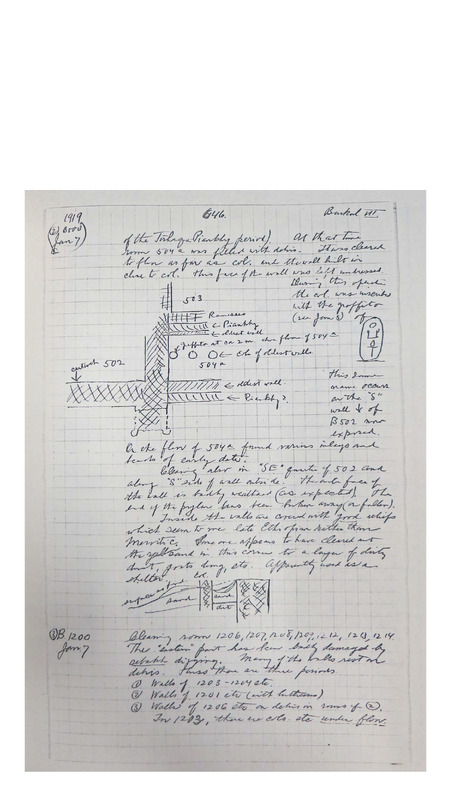 1919
646.
Barkal III.
(2) B 500
Jan 7
of the Tirhaqa-Piankhy period) At that time
room 504a was filled with debris. It was cleared
to floor as far as col. and the wall built in
close to col. This face of the wall was left undressed.
During this
the col. was
with the graffito
(see Jan 5) of
503
Ramesses
← Piankhy
← oldest wall
graffito at ca 2 m above floor of 504a
← Cols of oldest walls
504a
502
← oldest wall
← Piankhy?
This same
name occurs
on the "S"
wall of
B 502 now
exposed.
On the floor of 504a found various inlays and
beads of early date.
Clearing also in "SE" quarter of 502 and
along "S" side of wall outside. The outer face of
the wall is badly weathered (as expected). The
end of the pylon has been broken away (or fallen).
Inside the walls are covered with good reliefs
which seem to me late Ethiopian rather than
Meroitic. Some one appears to have cleared out
the sand in this corner to a layer of dirty
dust, goats dung, etc. Apparently used as a
shelter.
Col.
sand
sand
dirt
(3) B 1200
Jan 7
Clearing rooms 1206, 1207, 1208, 1209, 1212, 1213, 1214.
The "eastern" part has been badly damaged by
sebakh digging. Many of the walls rest on
debris. Thus there are three periods
① Walls of 1203-1204 etc.
② Walls of 1201 etc (with bathrooms)
③ Walls of 1206 etc on debris in rooms of ②.
In 1203, there are cols. etc under floor.